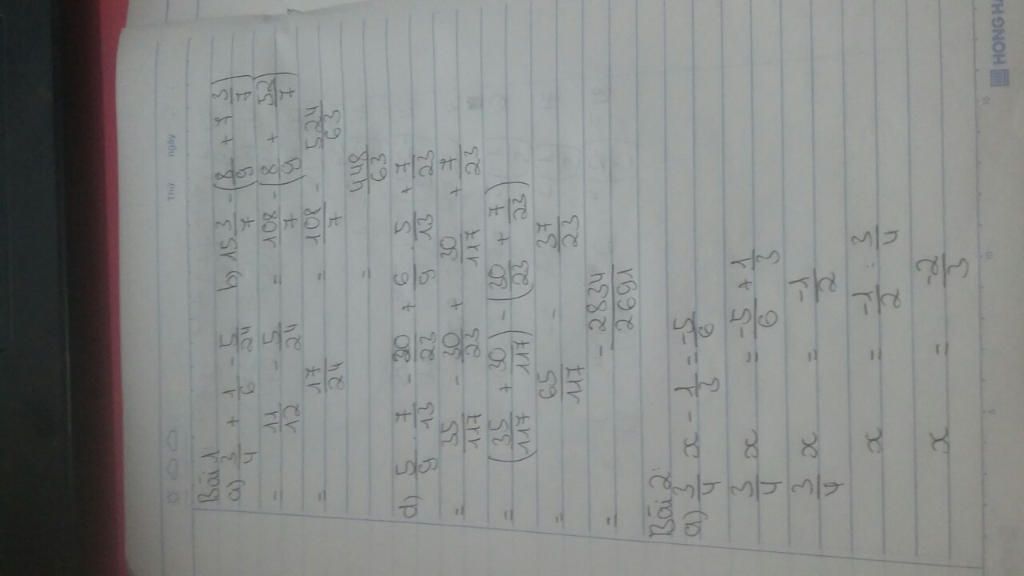 Thứ Ngày
Bài 1:
a) 3/4 + 1/6 - 5/24 b) 15 3/7 - (8/9 + 7 3/7)
= 11/12 - 5/24 = 108/7 - (8/9 + 52/7)
= 17/24 = 108/7 - 524/63
= 448/63
d) 5/9 . 7/13 - 30/23 + 6/9 . 5/13 + 7/23
= 35/117 - 30/23 + 30/117 + 7/23
= (35/117 + 30/117) - (30/23 + 7/23)
= 65/117 - 37/23
= -2834/2691
Bài 2:
a) 3/4 x - 1/3 = -5/6
3/4 x = -5/6 + 1/3
3/4 x = -1/2
x = -1/2 : 3/4
x = -2/3
HONG HA